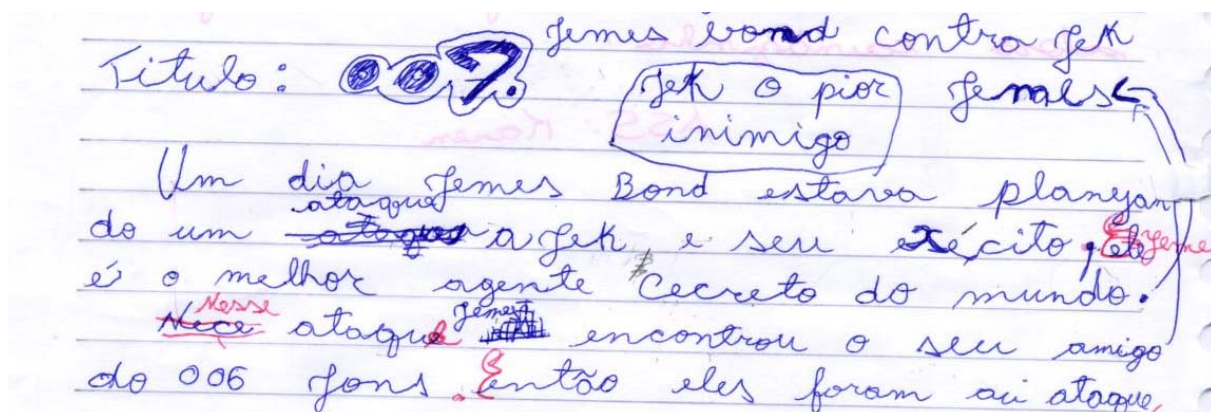 Jemes bond contra Jek
Titulo: 007. Jek o pior inimigo Jemes
Um dia Jemes Bond estava planejan
do um ataque a Jek e seu exécito, Jeme
é o melhor agente Cecreto do mundo.
Nesse ataque Jemes encontrou o seu amigo
do 006 Jons. Então eles foram ai ataque,